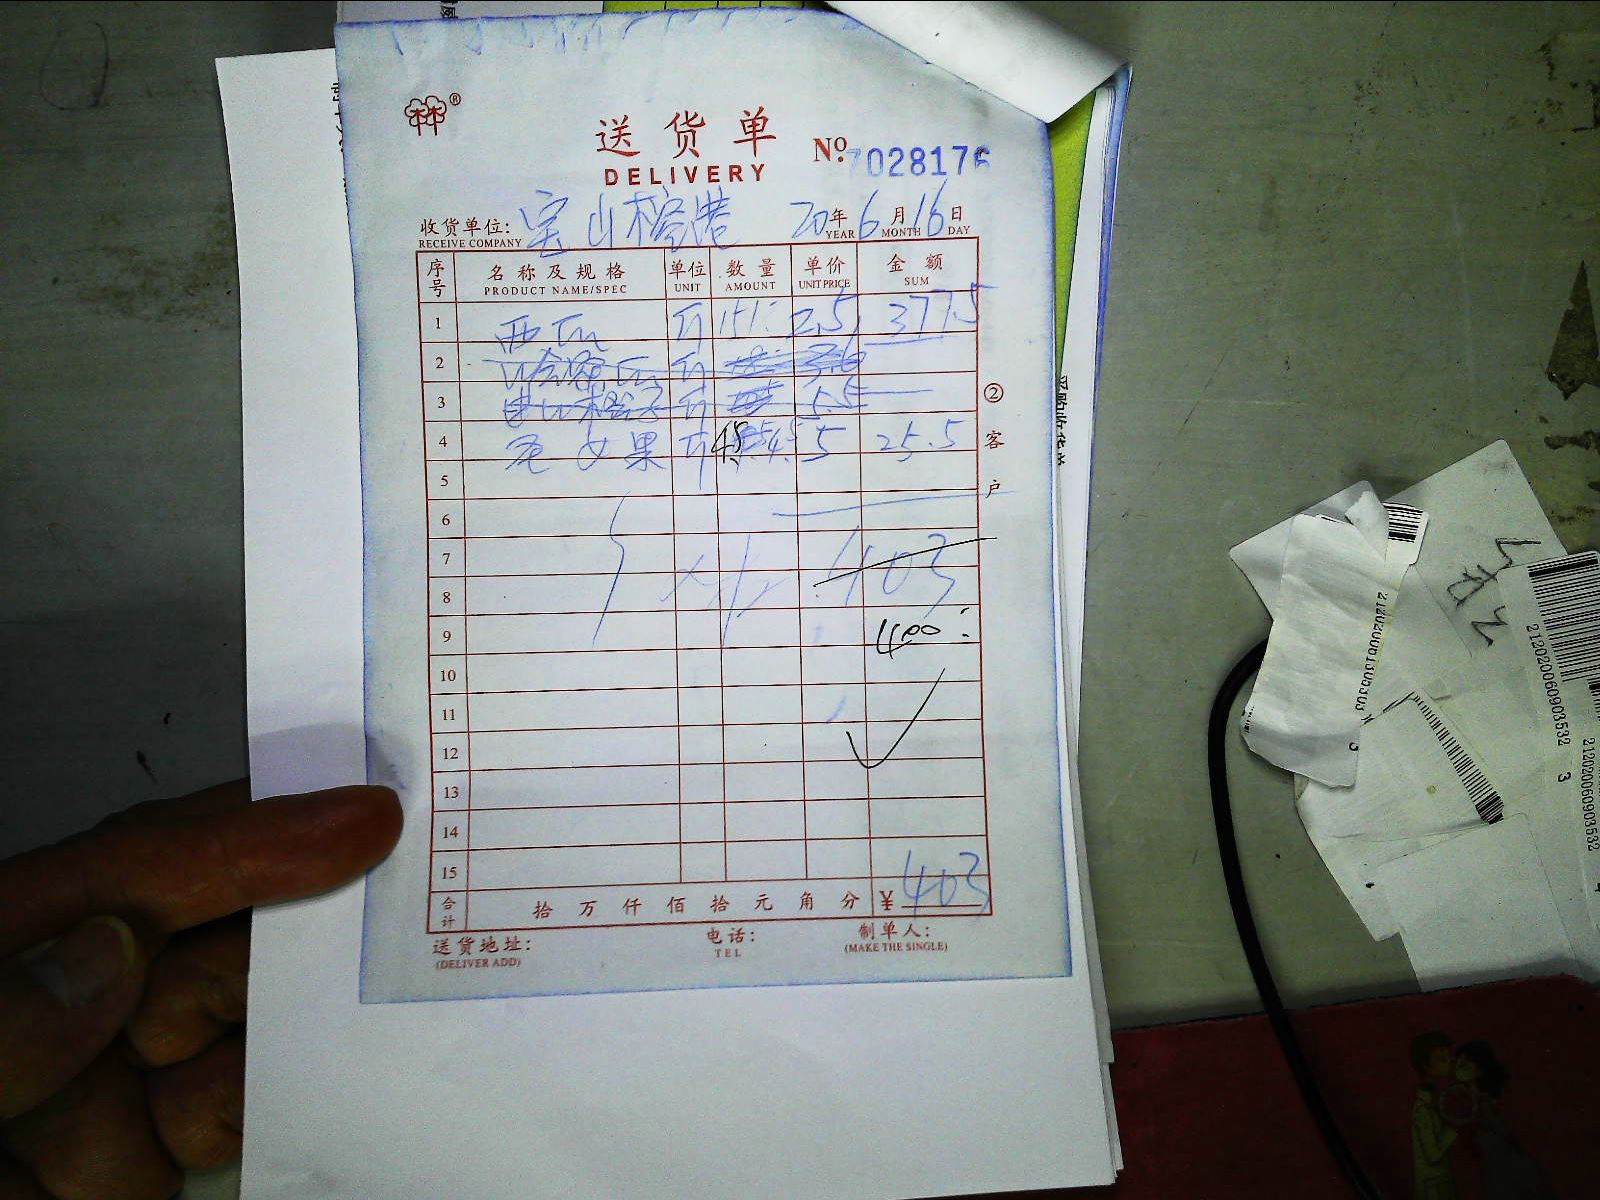 送货单
DELIVERY
No. 7028176
收货单位: 宝山榕港 20年6月16日
RECEIVE COMPANY YEAR MONTH DAY
序号 名称及规格 单位 数量 单价 金额
PRODUCT NAME/SPEC UNIT AMOUNT UNIT PRICE SUM
1 西瓜 斤 151: 2.5 377.5
2 哈密瓜 斤 3.6
3 斤 5.5
4 圣女果 斤 4.5 5 25.5
5
6
7 403
8
9 400:
10
11
12
13
14
15
合计 拾万仟佰拾元角分 ¥ 403
送货地址: 电话: 制单人:
(DELIVER ADD) TEL (MAKE THE SINGLE)
②客户
212020060903532
3
212020060903532